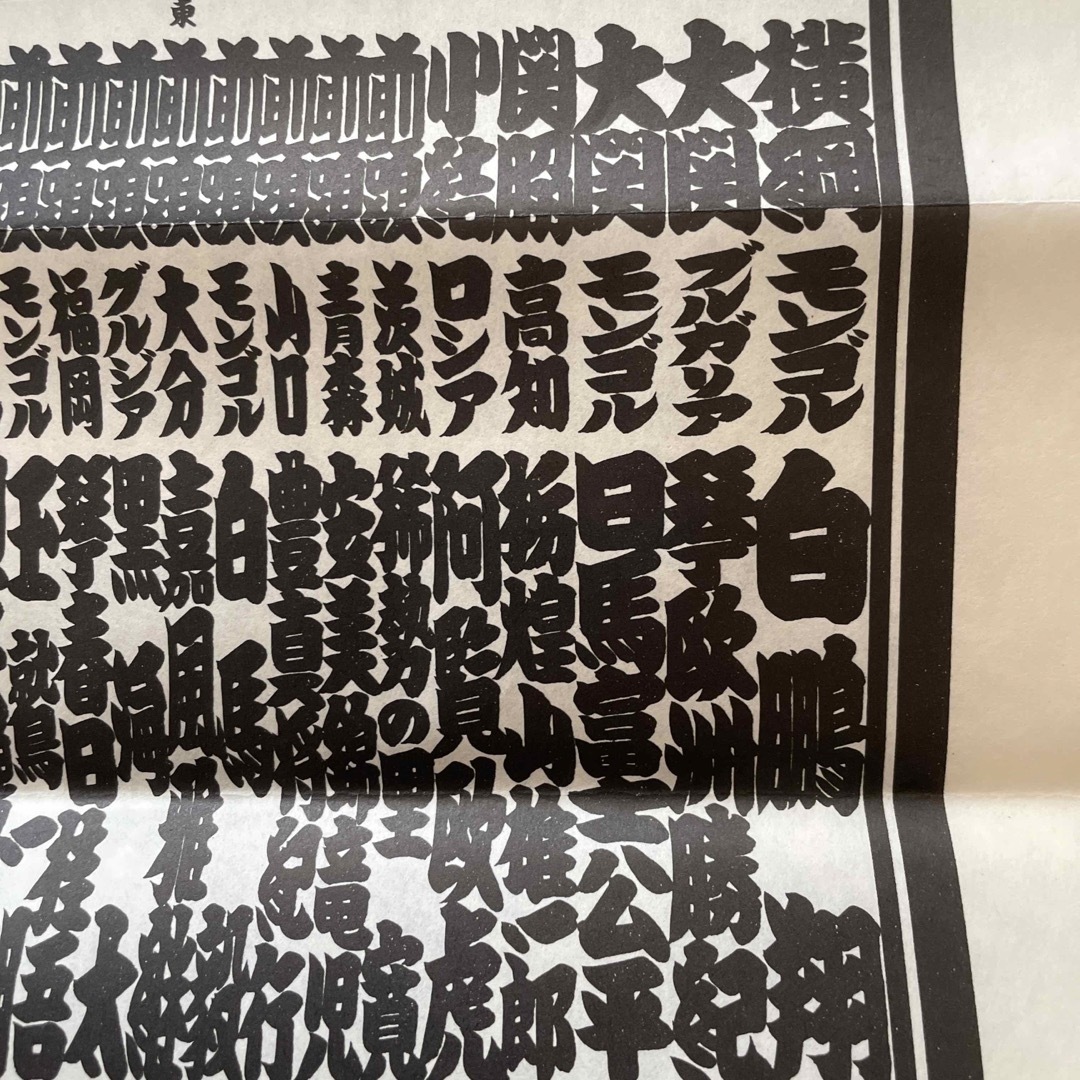 東
横綱 モンゴル 白鵬 翔
大関 ブルガリア 琴欧洲 勝紀
大関 モンゴル 日馬富士 公平
関脇 高知 栃煌山 雄一郎
小結 ロシア 阿覧 欧虎
前頭 茨城 稀勢の里 寛
前頭 青森 安美錦 竜児
前頭 山口 豊真将 紀行
前頭 モンゴル 白馬 毅
前頭 大分 嘉風 雅継
前頭 グルジア 黒海 太
前頭 福岡 琴春日 桂悟
前頭 モンゴル